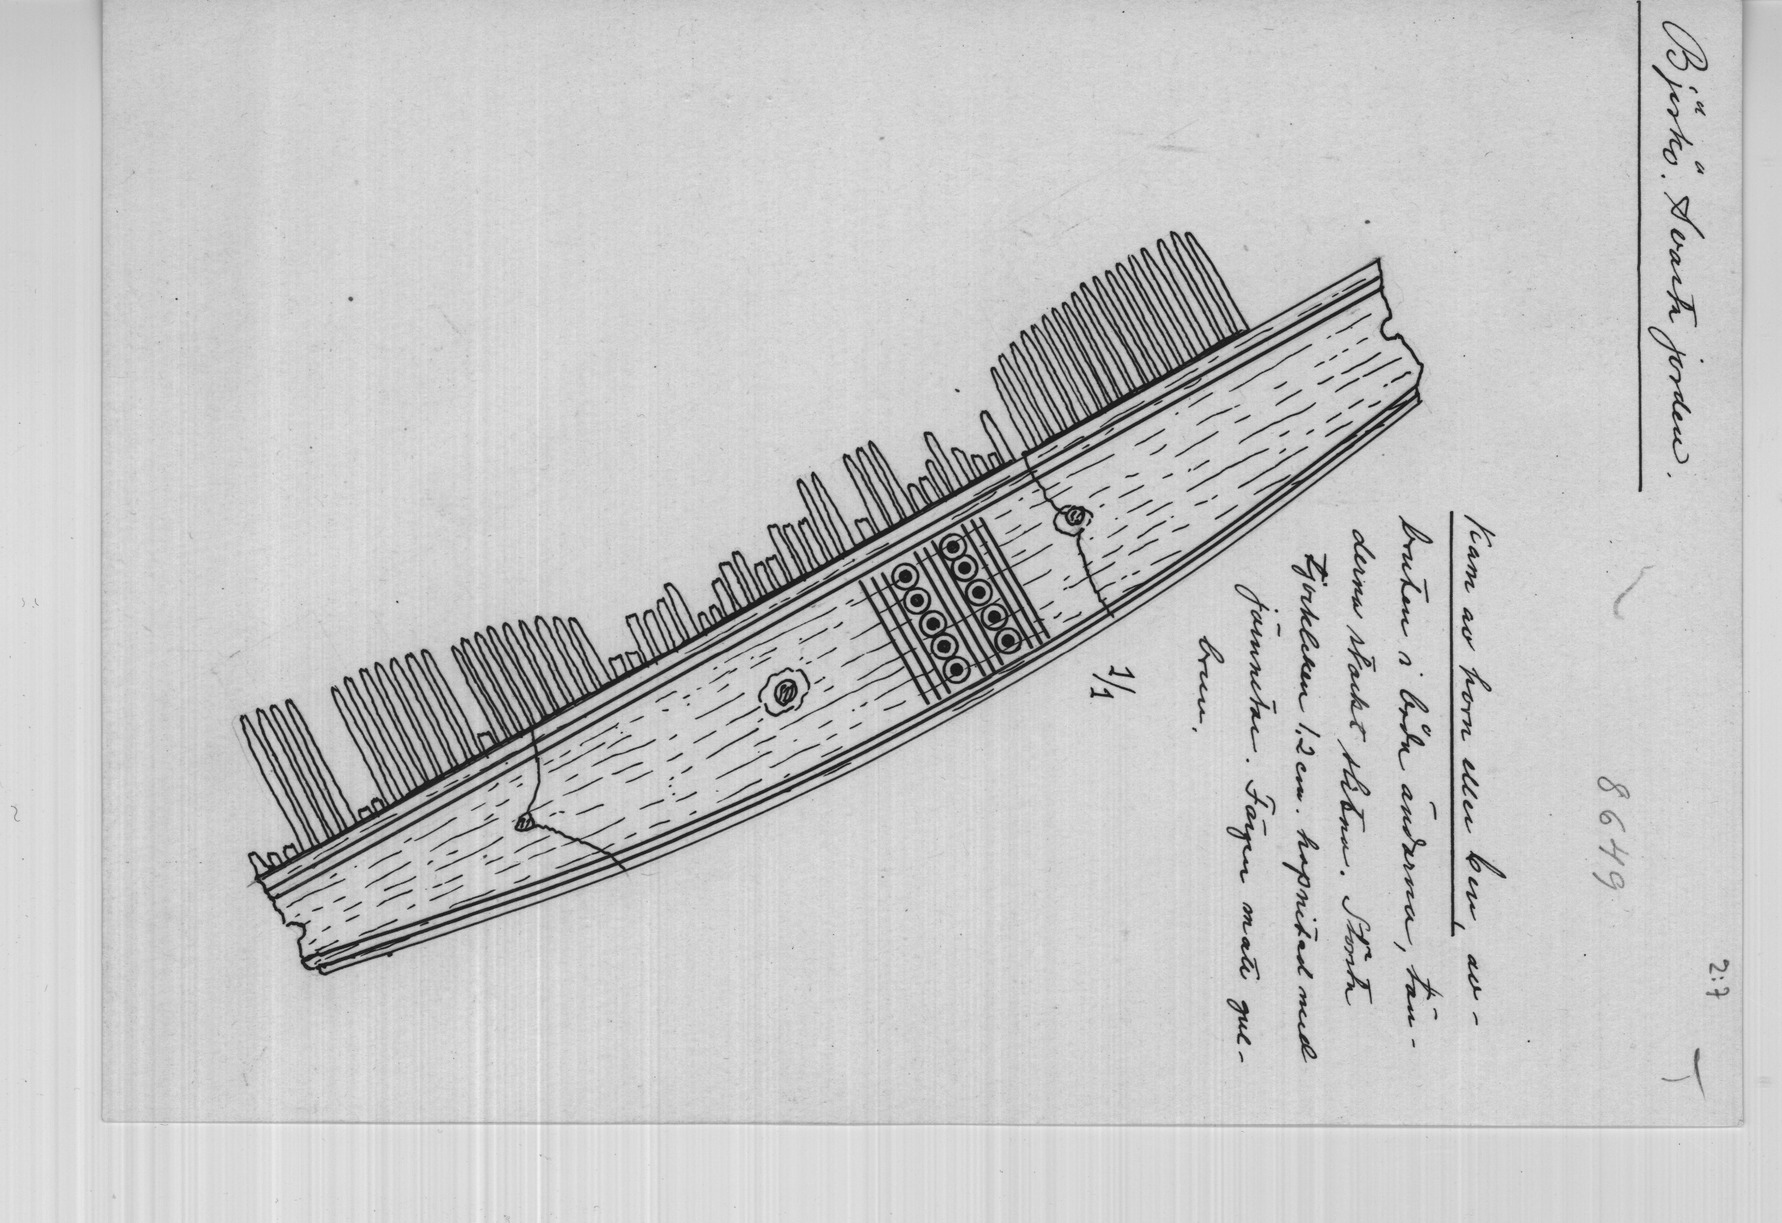 Björkö. Svarta jorden.
2:7
8649
Kam av horn eller ben, av-
bruten i båda ändarna, tän-
derna starkt slitna. Största
tjockleken 1,2 cm. hopnitad med
järnnitar. Färgen matt gul-
brun.
1/1